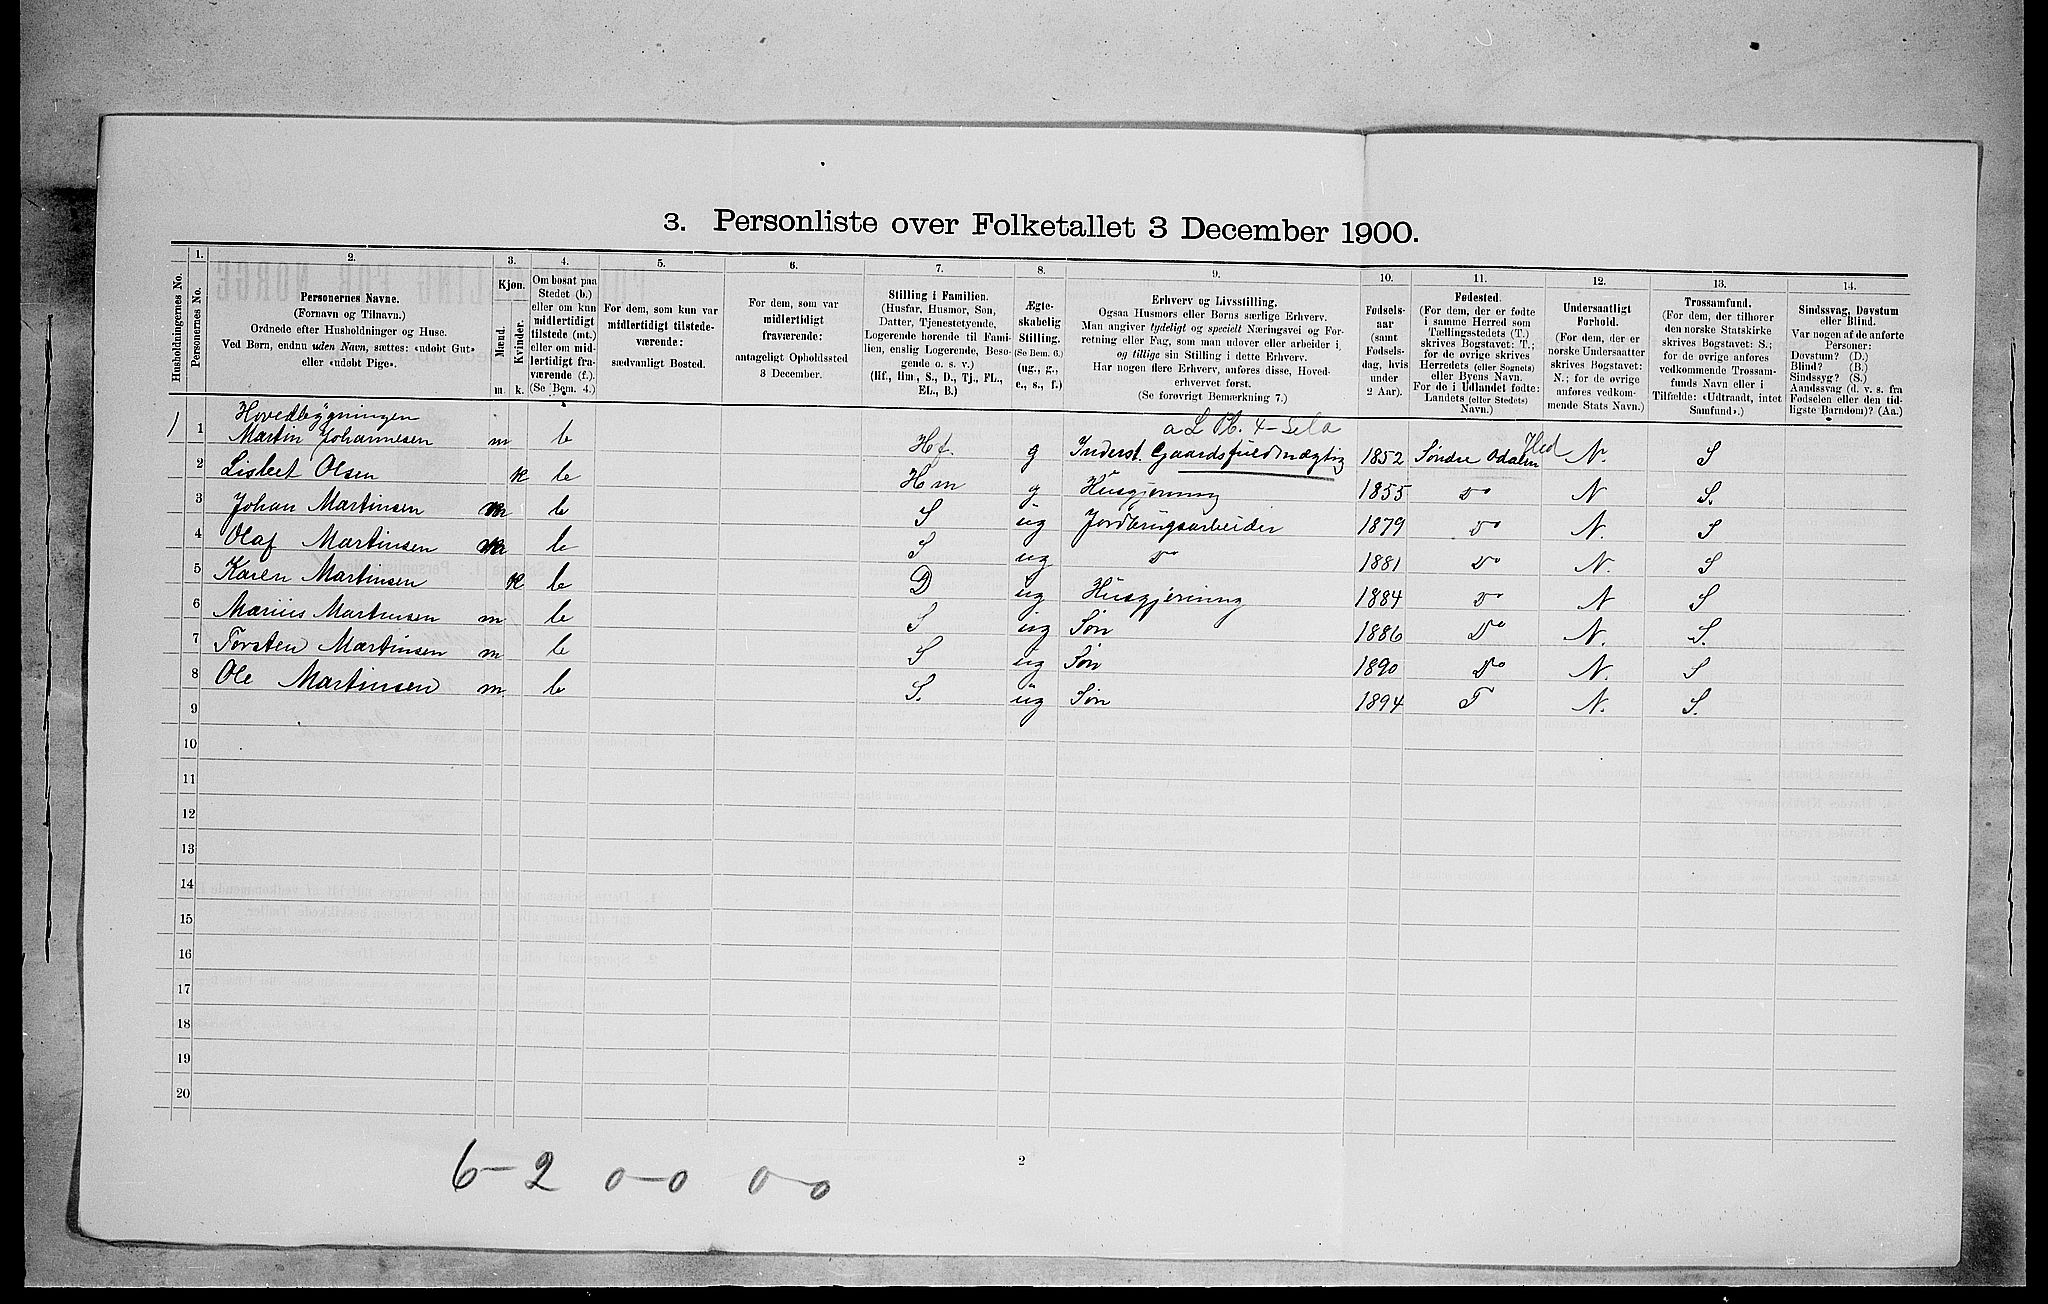 3. Personliste over Folketallet 3 December 1900.
1. 2. 3. 4. 5. 6. 7. 8. 9. 10. 11. 12. 13. 14.
Husholdningernes No.
Personernes No.
Personernes Navne.
(Fornavn og Tilnavn.)
Ordnede efter Husholdninger og Huse.
Ved Børn, endnu uden Navn, sættes: «udøbt Gut»
eller «udøbt Pige».
Kjøn.
Mænd.
Kvinder.
m. k.
Om bosat paa
Stedet (b.)
eller om kun
midlertidigt
tilstede (mt.)
eller om mid-
lertidigt fra-
værende (f.)
(Se Bem. 4.)
For dem, som kun var
midlertidigt tilstede-
værende:
sædvanligt Bosted.
For dem, som var
midlertidigt
fraværende:
antageligt Opholdssted
3 December.
Stilling i Familien.
(Husfar, Husmor, Søn,
Datter, Tjenestetyende,
Logerende hørende til Fami-
lien, enslig Logerende, Besø-
gende o. s. v.)
(Hf., Hm., S., D., Tj., FL.,
EL., B.)
Ægte-
skabelig
Stilling.
(Se Bem. 6.)
(ug., g.,
e., s., f.)
Erhverv og Livsstilling.
Ogsaa Husmors eller Børns særlige Erhverv.
Man angiver tydeligt og specielt Næringsvei og For-
retning eller Fag, som man udøver eller arbeider i,
og tillige sin Stilling i dette Erhverv.
Har nogen flere Erhverv, anføres disse, Hoved-
erhvervet først.
(Se forøvrigt Bemærkning 7.)
Fødsels-
aar
(samt
Fødsels-
dag, hvis
under
2 Aar).
Fødested.
(For dem, der er fødte
i samme Herred som
Tællingsstedets (T.)
skrives Bogstavet: T.;
for de øvrige skrives
Herredets (eller Sognets)
eller Byens Navn.
For de i Udlandet fødte:
Landets (eller Stedets)
Navn.)
Undersaatligt
Forhold.
(For dem, der er
norske Undersaatter
skrives Bogstavet:
N.; for de øvrige
anføres vedkom-
mende Stats Navn.)
Trossamfund.
(For dem, der tilhører
den norske Statskirke
skrives Bogstavet: S.;
for de øvrige anføres
vedkommende Trossam-
funds Navn eller i
Tilfælde: «Udtraadt, intet
Samfund».)
Sindssvag, Døvstum
eller Blind.
Var nogen af de anførte
Personer:
Døvstum? (D.)
Blind? (B.)
Sindssyg? (S.)
Aandssvag (d. v. s. fra
Fødselen eller den tid-
ligste Barndom)? (Aa.)
Hovedbygningen
1 1 Martin Johannesen m b Hf. g Inderst. Gaardsfuldmægtig 1852 Søndre Odalen Hed N. S
2 Lisbet Olsen k b Hm g Husgjerning 1855 Do N S.
3 Johan Martinsen m b S ug Jordbrugsarbeider 1879 Do N. S
4 Olaf Martinsen m b S ug Do 1881 Do N. S
5 Karen Martinsen k b D ug Husgjerning 1884 Do N S
6 Marius Martinsen m b S ug Søn 1886 Do N. S.
7 Torsten Martinsen m b S ug Søn 1890 Do N. S
8 Ole Martinsen m. b S. ug Søn 1894 T N. S.
9
10
11
12
13
14
15
16
17
18
19
20
6-2 0-0 0-0
2